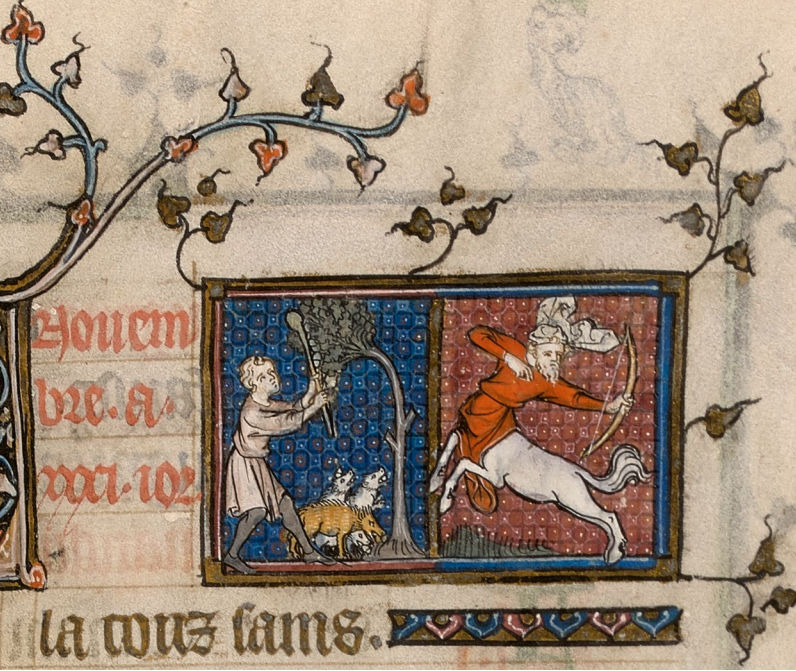 Nouem
bre. a.
xxxi. ior.
la touz sains.